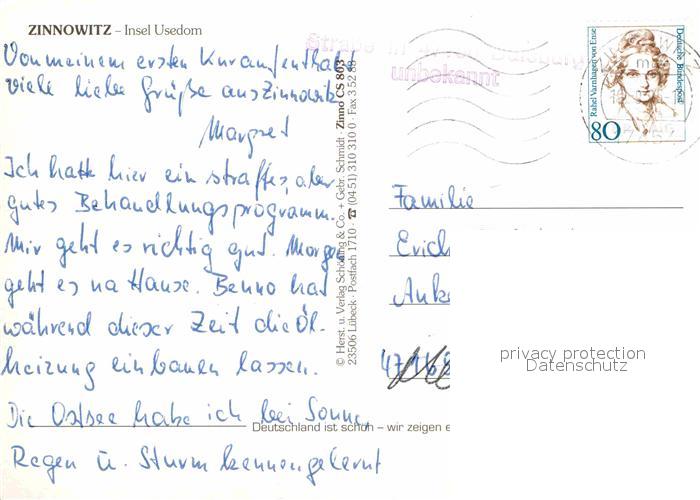 ZINNOWITZ – Insel Usedom
Von meinem ersten Kuraufenthalt
viele liebe Grüße aus Zinnowitz
Margret
Ich hatte hier ein straffes, aber
gutes Behandlungsprogramm.
Mir geht es richtig gut. Morgen
geht es na Hause. Benno hat
während dieser Zeit die Öl-
heizung einbauen lassen.
Die Ostsee habe ich bei Sonne,
Regen u. Sturm kennengelernt
© Herst. u. Verlag Schöning & Co. + Gebr. Schmidt · Zinno CS 803
23506 Lübeck · Postfach 1710 · ☎ (04 51) 310 310 0 · Fax 3 52 88
Straße in
unbekannt
Rahel Varnhagen von Ense
Deutsche Bundespost
80
Familie
Erich
Anke
privacy protection
Datenschutz
Deutschland ist schön – wir zeigen e